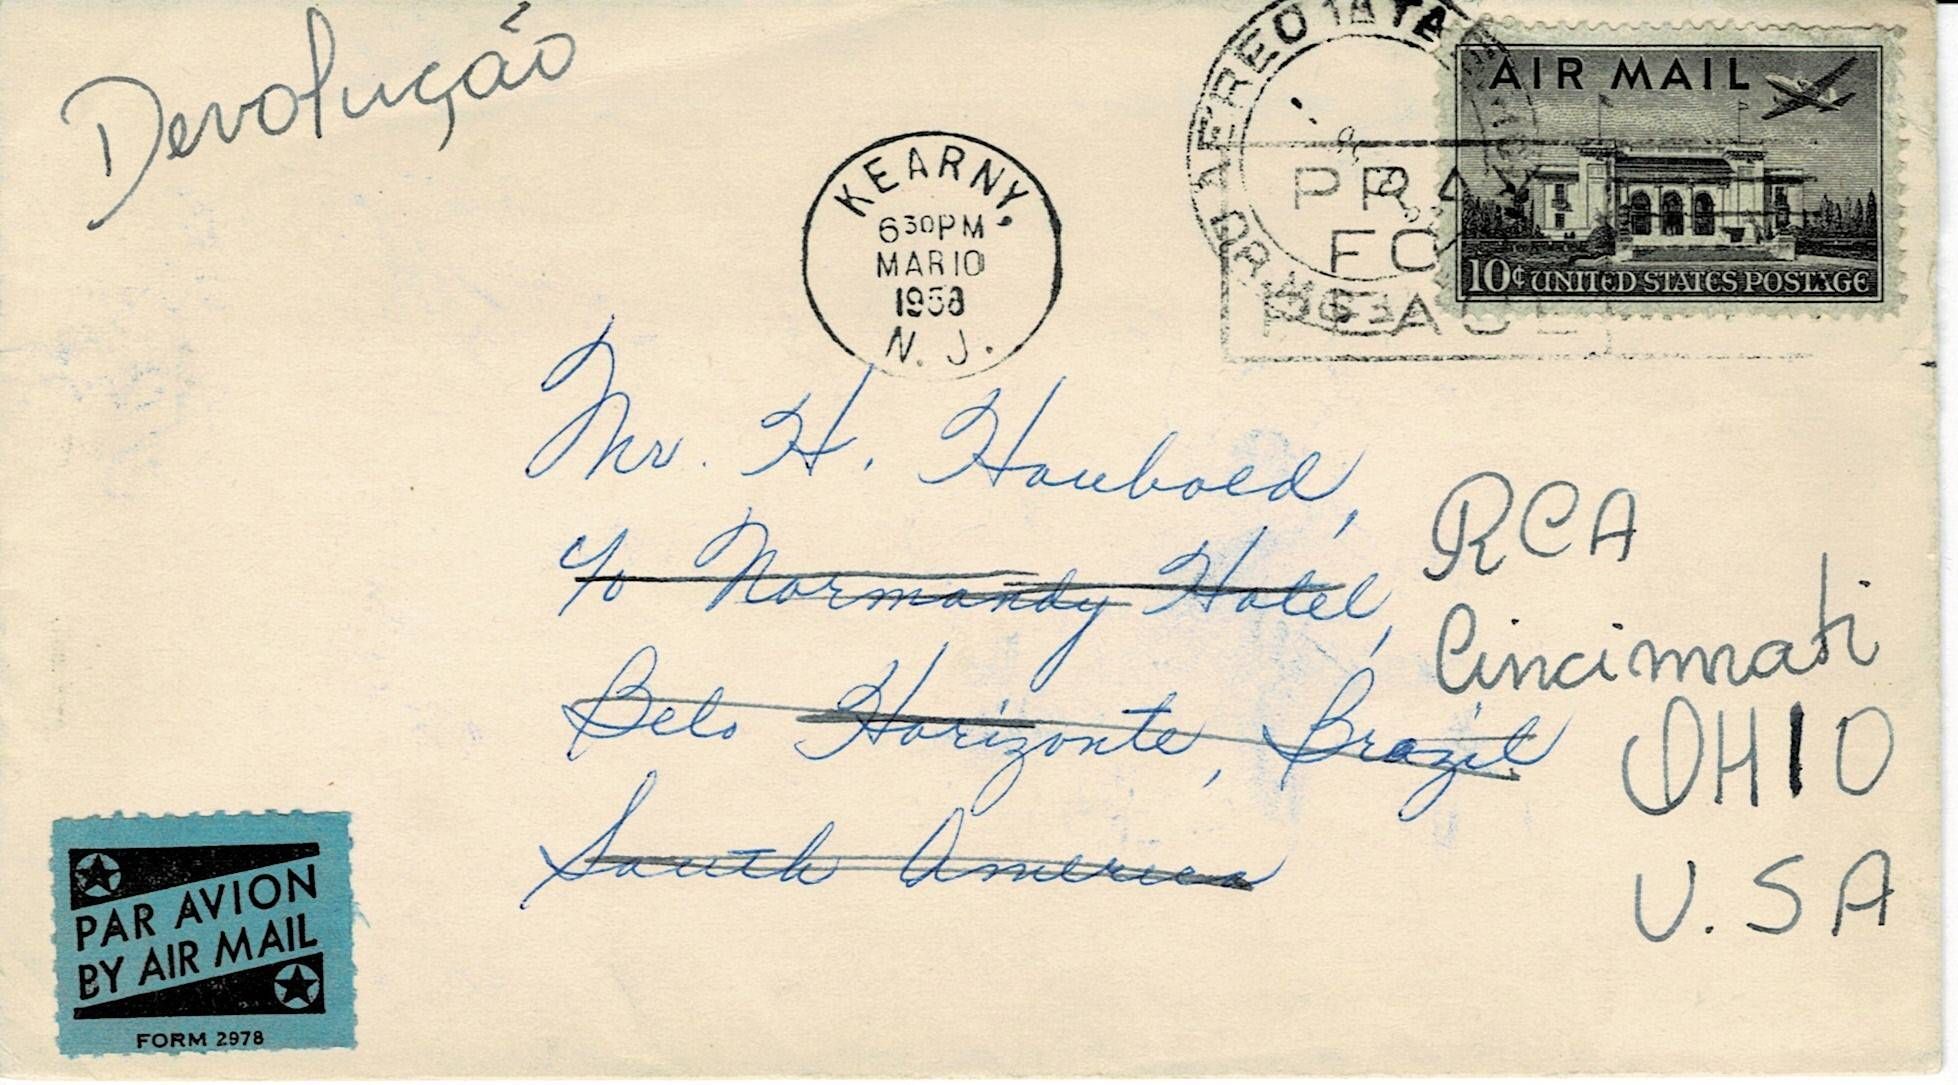 Devolução
KEARNY,
6 30 PM
MAR 10
1958
N. J.
AEREO
PRAY
FOR
PEACE
AIR MAIL
10¢ UNITED STATES POSTAGE
Mr. H. Houboed,
c/o Normandy Hotel,
Belo Horizonte, Brazil
South America
RCA
Cincinnati
OHIO
U.SA
PAR AVION
BY AIR MAIL
FORM 2978